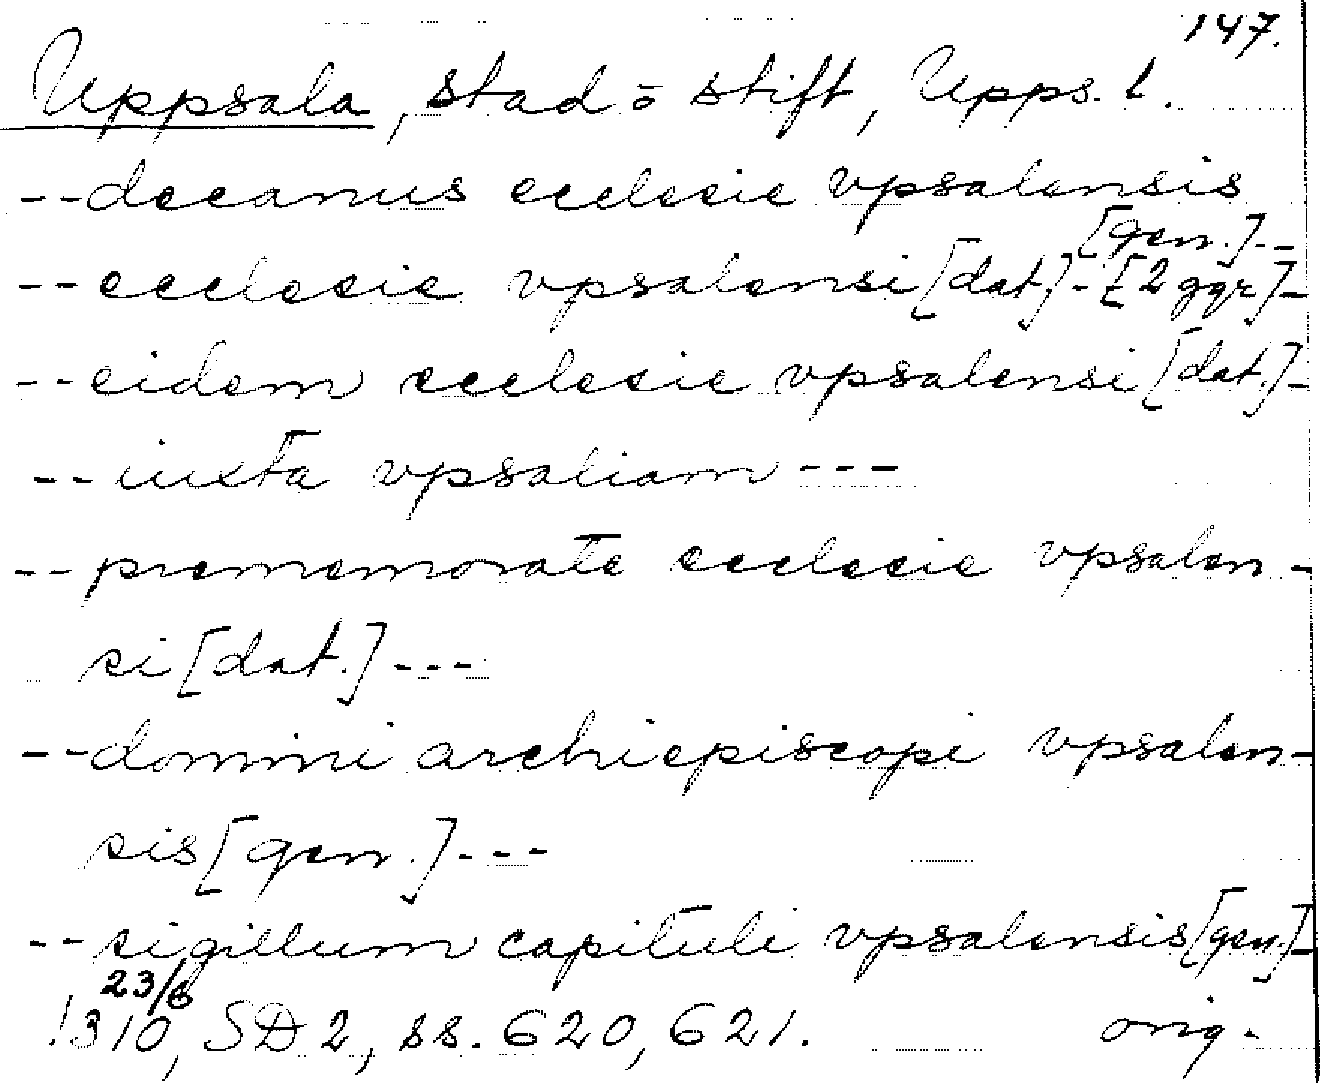 147.
Uppsala, stad o stift, Upps. l.
--decanus ecclesie vpsalensis
[gen.]--
--ecclesie vpsalensi[dat.]-[2 ggr]-
--eidem ecclesie vpsalensi[dat.]-
--iuxta vpsaliam---
--prememorate ecclesie vpsalen-
si[dat.]---
--domini archiepiscopi vpsalen-
sis[gen.]---
--sigillum capituli vpsalensis[gen.]-
23/6
1310, SD 2, ss. 620, 621. orig.